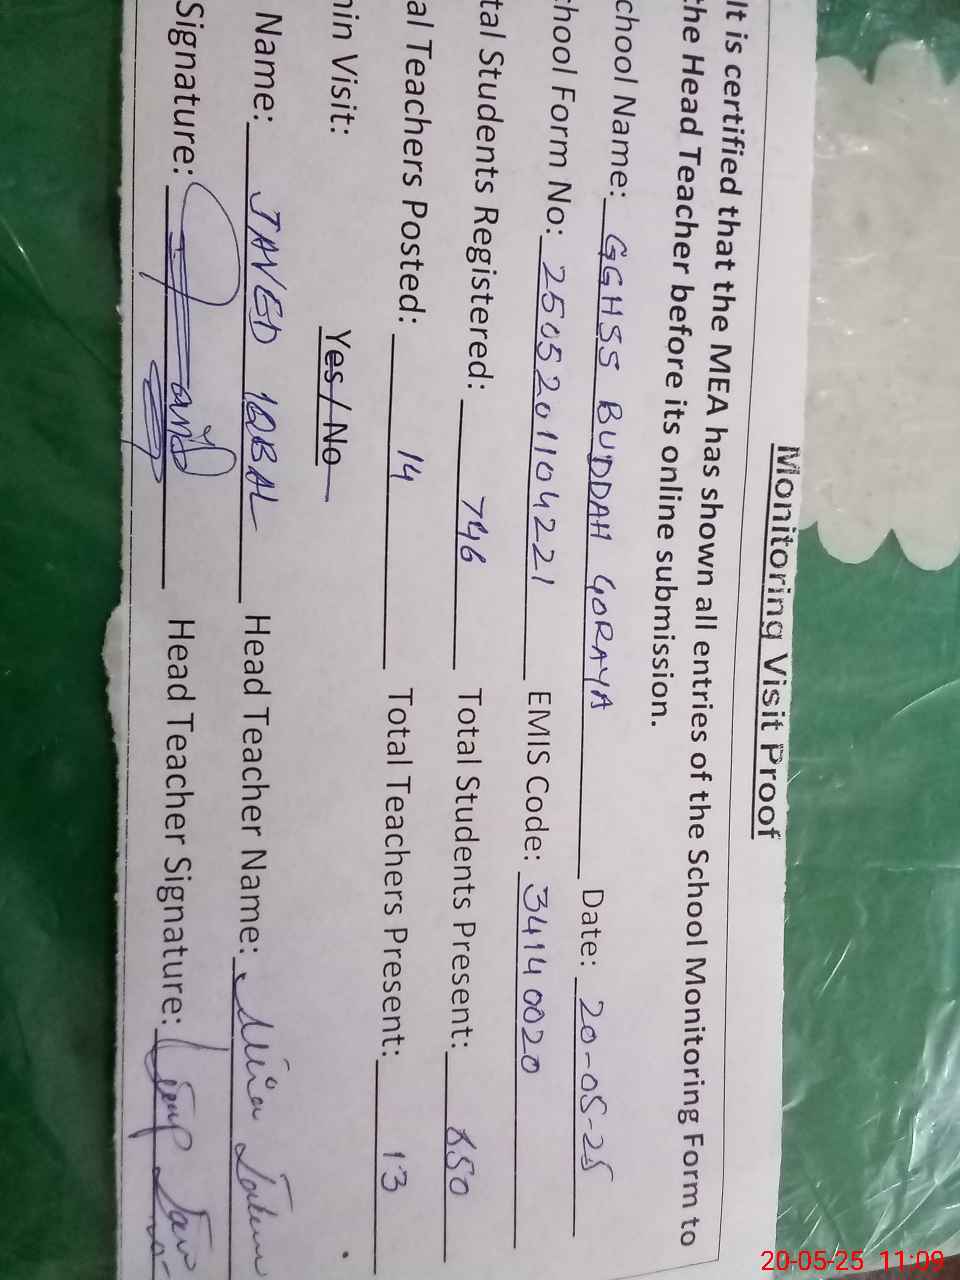 Monitoring Visit Proof
It is certified that the MEA has shown all entries of the School Monitoring Form to
the Head Teacher before its online submission.
chool Name: GGHSS BUDDAH GORAYA Date: 20-05-25
hool Form No: 2505201104221 EMIS Code: 34140020
tal Students Registered: 746 Total Students Present: 650
al Teachers Posted: 14 Total Teachers Present: 13
in Visit: Yes / No
Name: JAVED IQBAL Head Teacher Name:
Signature: Head Teacher Signature:
20-05-25 11:09